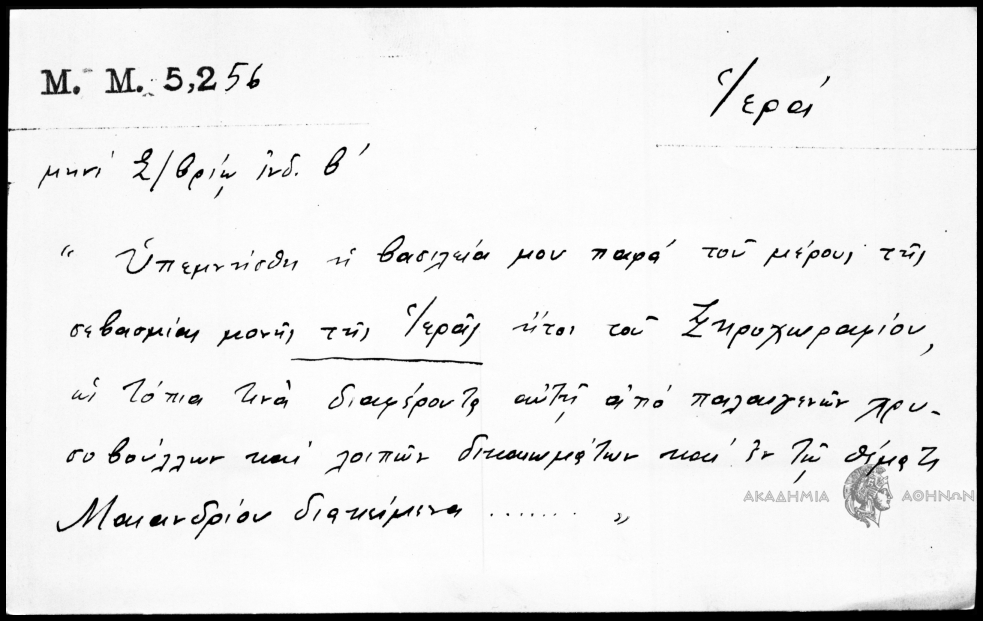 Μ. Μ. 5,256
Ἱερά
μηνί Σ/βρίῳ ἰνδ. β'
“ Ὑπεμνήσθη ἡ βασιλεία μου παρά τοῦ μέρους τῆς
σεβασμίας μονῆς τῆς Ἱερᾶς ἤτοι τοῦ Ξηροχωραφίου,
ὡς τόπια τινὰ διαφέροντα αὐτῇ ἀπό παλαιγενῶν χρυ-
σοβούλλων καί λοιπῶν δικαιωμάτων καί ἐν τῷ θέματι
Μαιανδρίου διακείμενα ....... „
ΑΚΑΔΗΜΙΑ ΑΘΗΝΩΝ